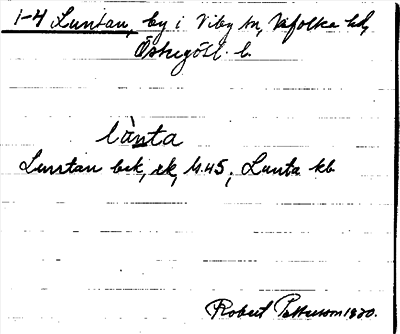 1-4 Luntan, by i Viby sn, Vifolka hd,
Östergötl. l.
lànta
Luntan bek, rk, M.45; Lunta kb
Robert Pettersson 1930.